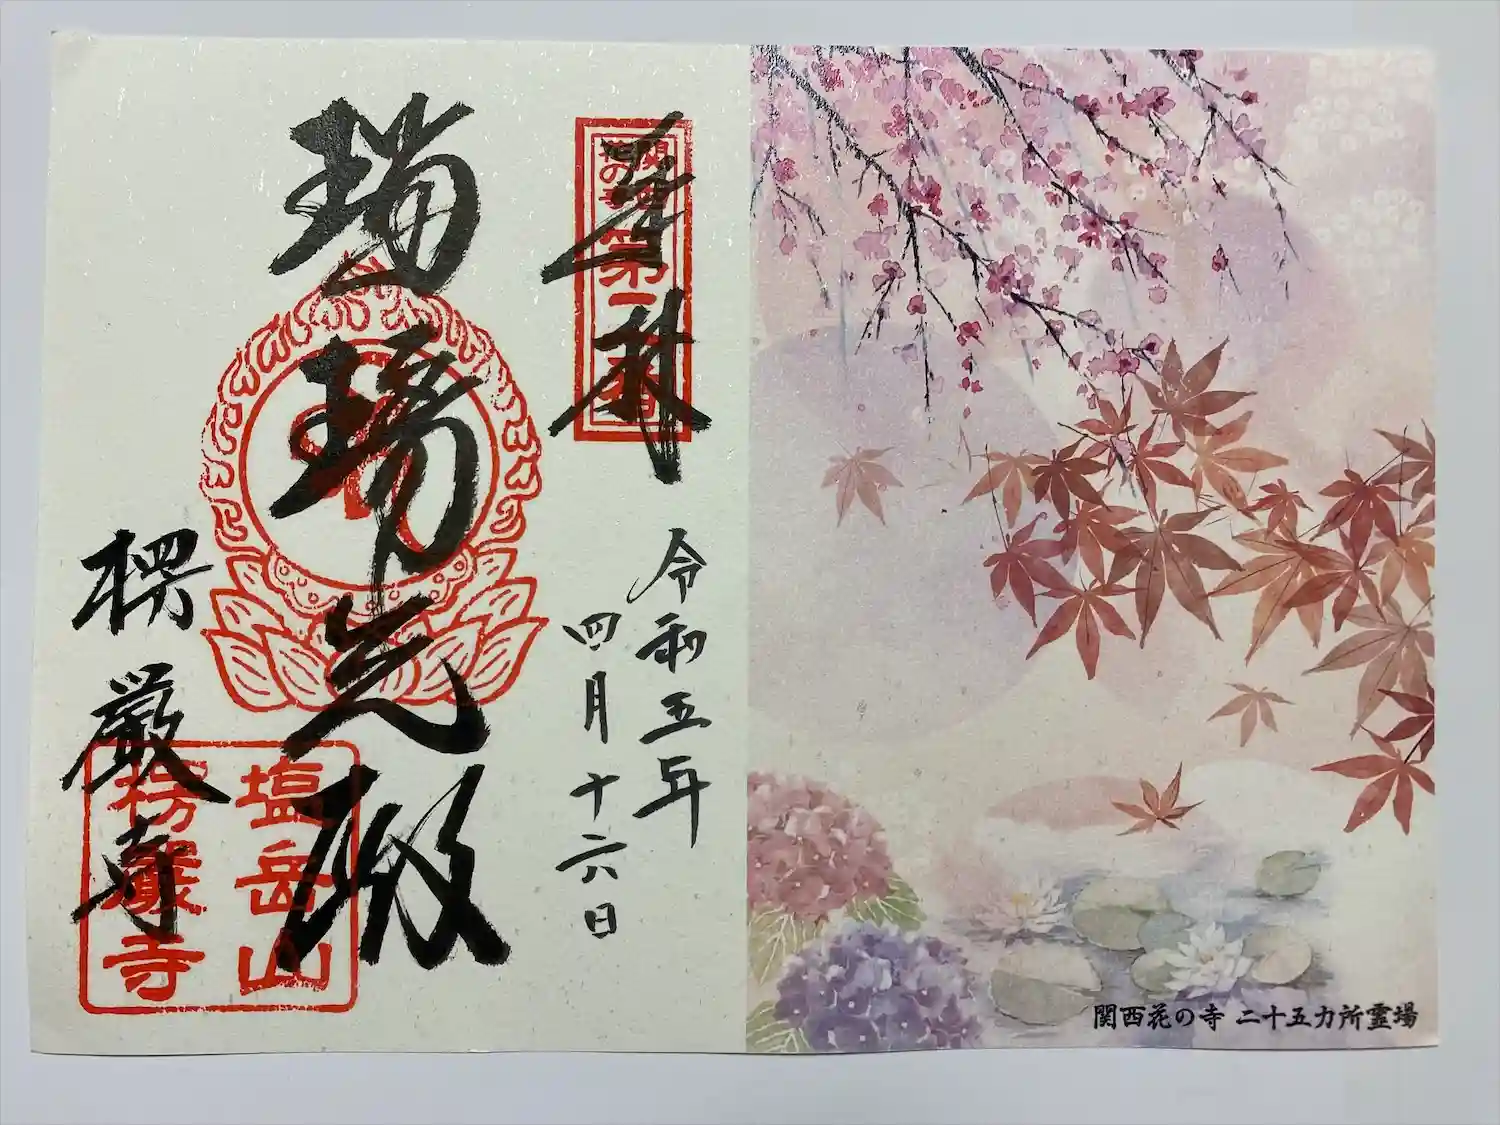 奉拝
関西
花の寺
第 番
令和五年
四月十六日
瑠璃光殿
楞厳寺
塩岳山
楞嚴寺
関西花の寺 二十五カ所霊場